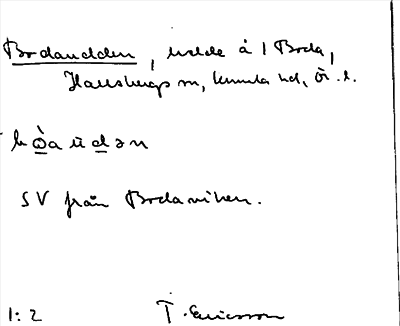 Bodaudden, udde å 1 Boda,
Hallsbergs sn, Kumla hd, Ör. l.
bòaud̲ən
SV från Bodaviken.
1:2 T. Ericsson